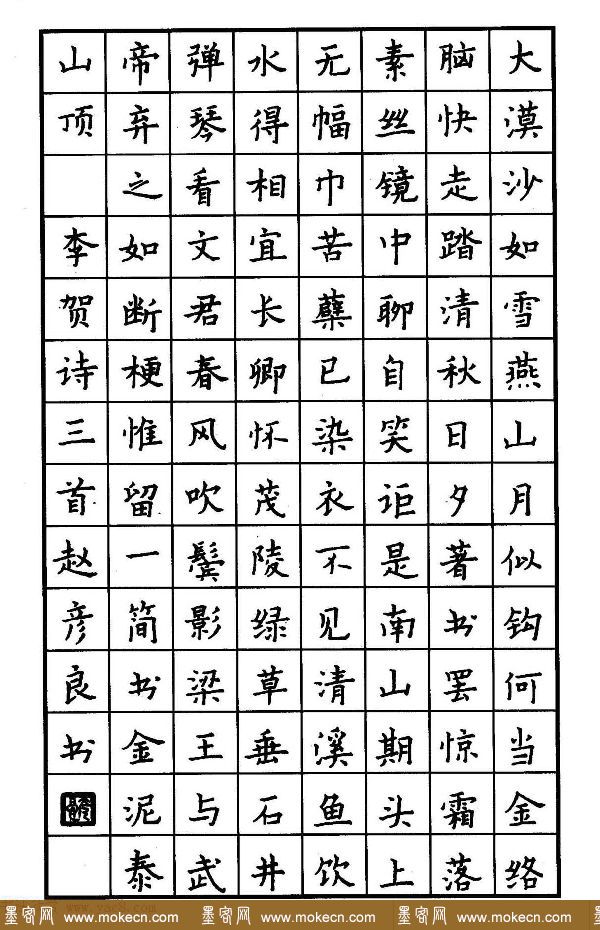 大漠沙如雪燕山月似钩何当金络
脑快走踏清秋日夕著书罢惊霜落
素丝镜中聊自笑讵是南山期头上
无幅巾苦蘖已染衣不见清溪鱼饮
水得相宜长卿怀茂陵绿草垂石井
弹琴看文君春风吹鬓影梁王与武
帝弃之如断梗惟留一简书金泥泰
山顶 李贺诗三首赵彦良书
墨客网 www.mokecn.com 墨客网 www.mokecn.com 墨客网 www.mokecn.com